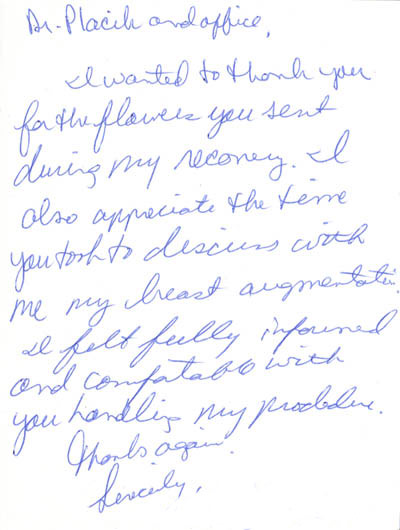 Dr. Placik and office,
I wanted to thank you
for the flowers you sent
during my recovery. I
also appreciate the time
you took to discuss with
me my breast augmentation.
I felt fully informed
and comfortable with
you handling my procedure.
Thanks again.
Sincerely,